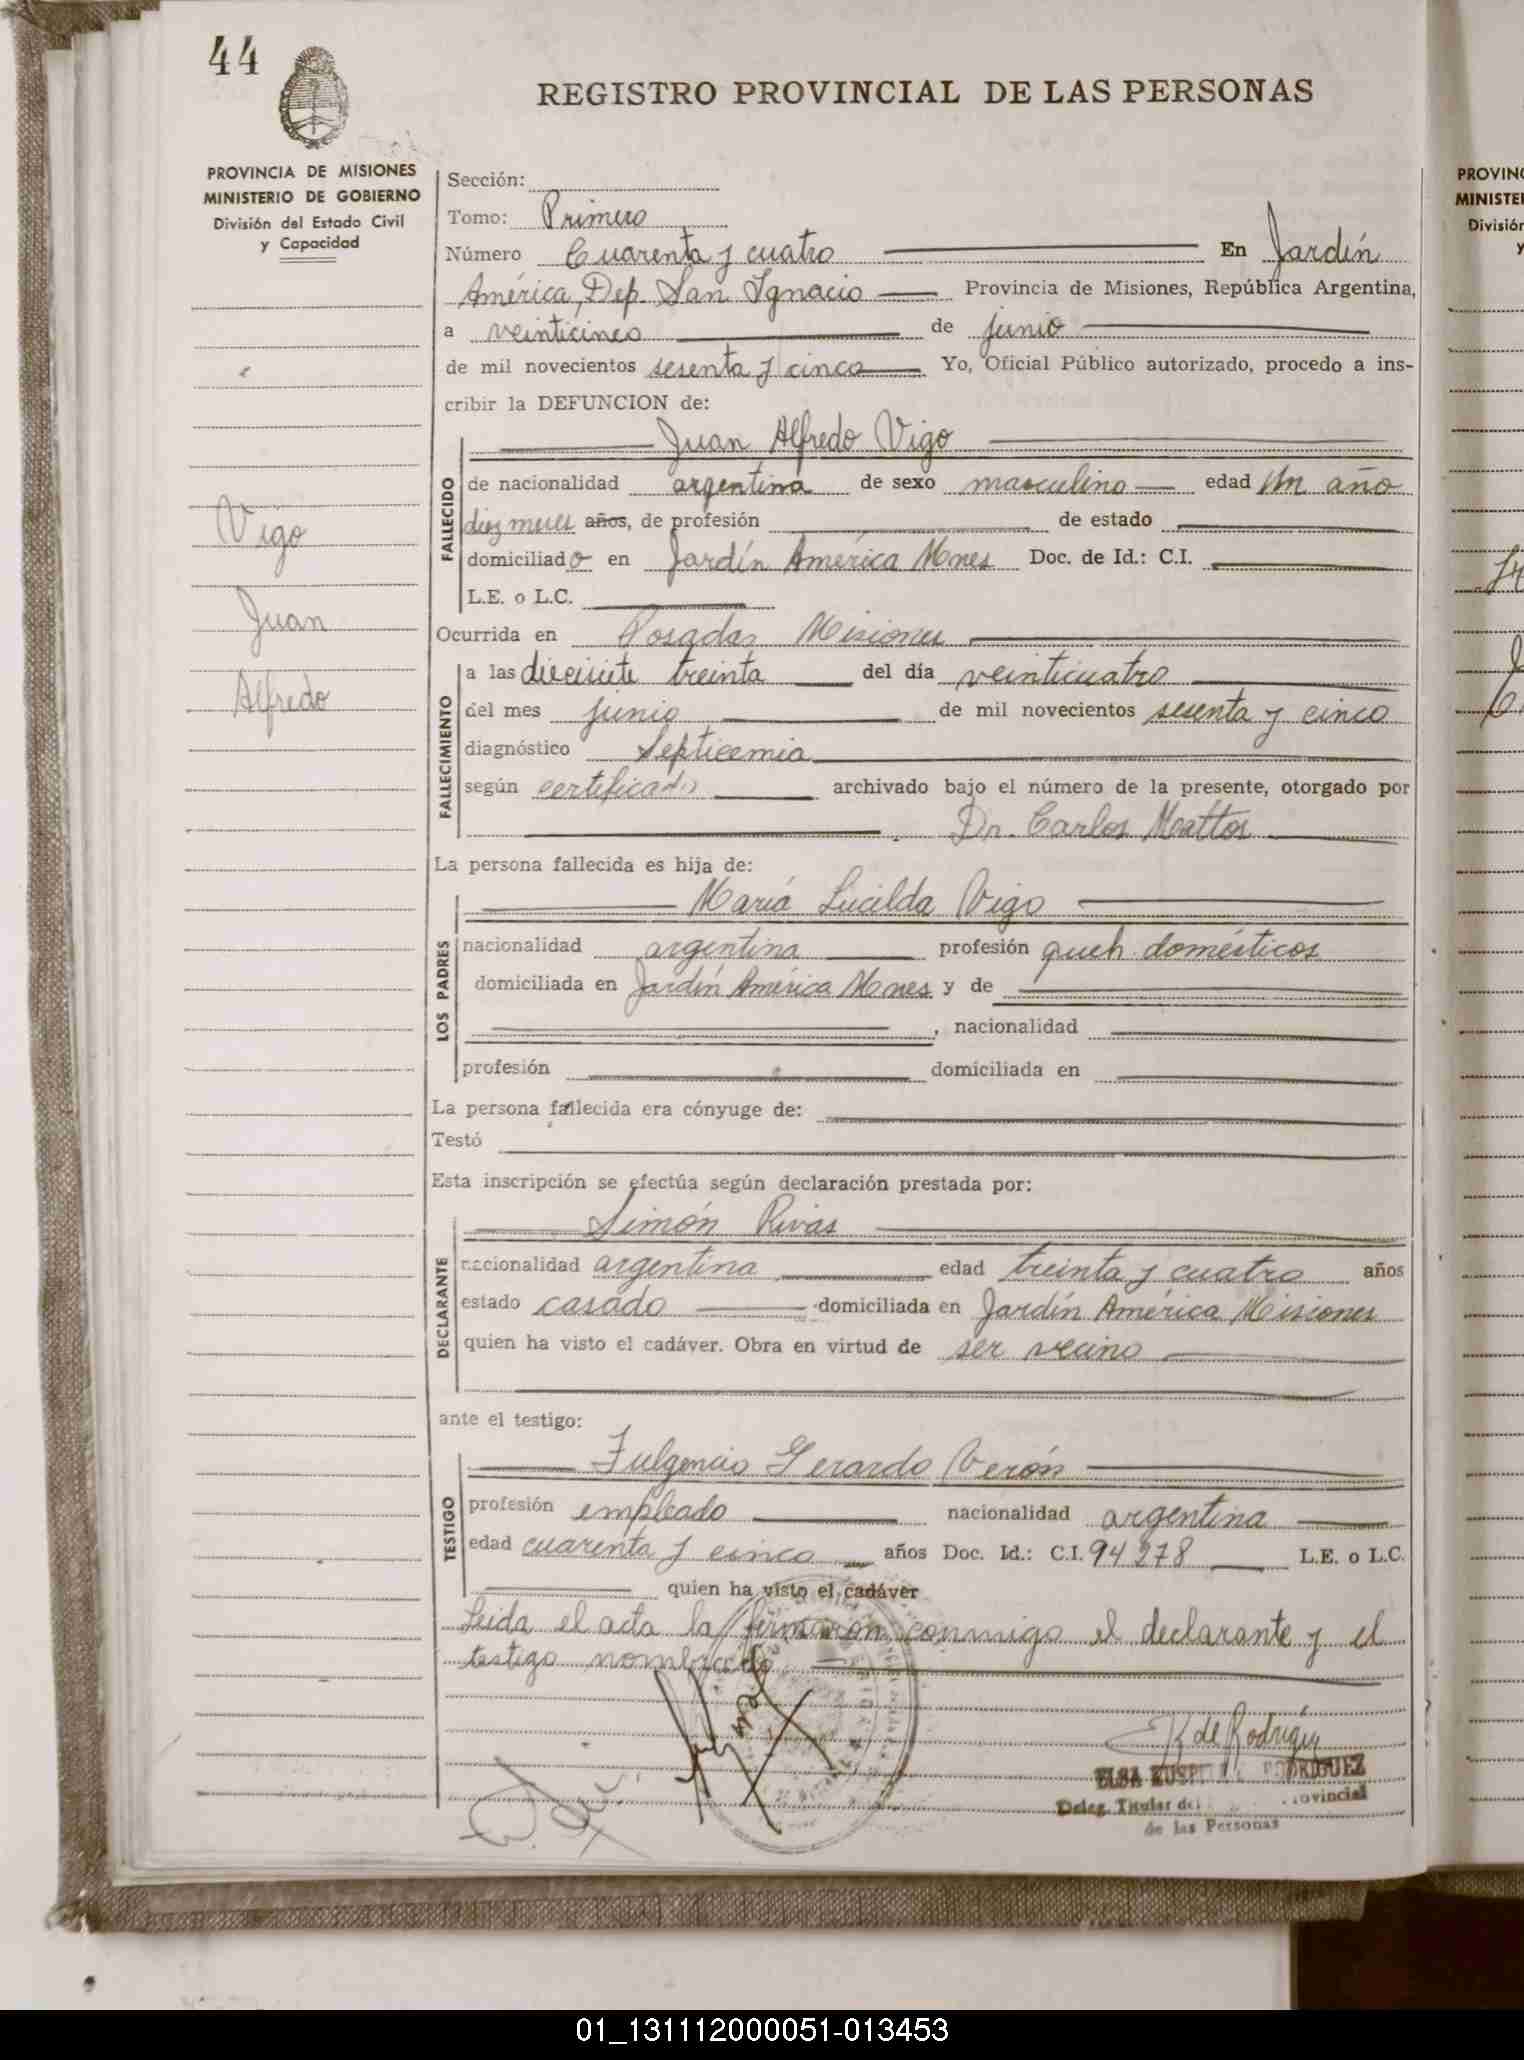 44
REGISTRO PROVINCIAL DE LAS PERSONAS
PROVINCIA DE MISIONES
MINISTERIO DE GOBIERNO
División del Estado Civil
y Capacidad
Vigo
Juan
Alfredo
Sección:
Tomo: Primero
Número Cuarenta y cuatro En Jardín
América, Dep. San Ignacio Provincia de Misiones, República Argentina,
a veinticinco de junio
de mil novecientos sesenta y cinco Yo, Oficial Público autorizado, procedo a ins-
cribir la DEFUNCION de:
Juan Alfredo Vigo
FALLECIDO
de nacionalidad argentina de sexo masculino edad Un año
diez meses años, de profesión de estado
domiciliado en Jardín América Mnes Doc. de Id.: C.I.
L.E. o L.C.
Ocurrida en Posadas Misiones
FALLECIMIENTO
a las diecisiete treinta del día veinticuatro
del mes junio de mil novecientos sesenta y cinco
diagnóstico Septicemia
según certificado archivado bajo el número de la presente, otorgado por
Dr. Carlos Mattos
La persona fallecida es hija de:
María Lucilda Vigo
LOS PADRES
nacionalidad argentina profesión queh domésticos
domiciliada en Jardín América Mnes y de
, nacionalidad
profesión domiciliada en
La persona fallecida era cónyuge de:
Testó
Esta inscripción se efectúa según declaración prestada por:
Simón Rivas
DECLARANTE
nacionalidad argentina edad treinta y cuatro años
estado casado domiciliada en Jardín América Misiones
quien ha visto el cadáver. Obra en virtud de ser vecino
ante el testigo:
Fulgencio Gerardo Verón
TESTIGO
profesión empleado nacionalidad argentina
edad cuarenta y cinco años Doc. Id.: C.I. 94278 L.E. o L.C.
quien ha visto el cadáver
Leida el acta la firmaron conmigo el declarante y el
testigo nombrado
K de Rodriguez
ELSA RODRIGUEZ
Deleg. Titular del Provincial
de las Personas
PROVINC
MINISTE
División
y
01_131112000051-013453